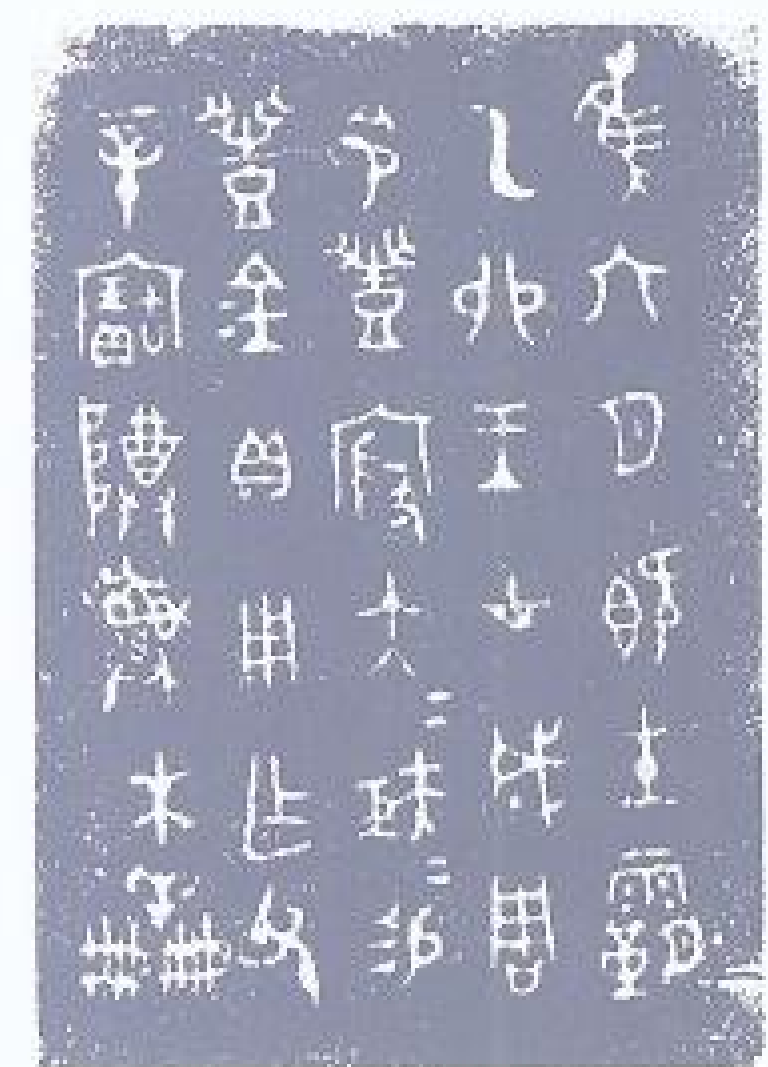 隹六月既生霸
乙卯王才成周
令豐殷大＝矩＝易
豐金貝用乍父
辛寶尊彝木羊冊冊